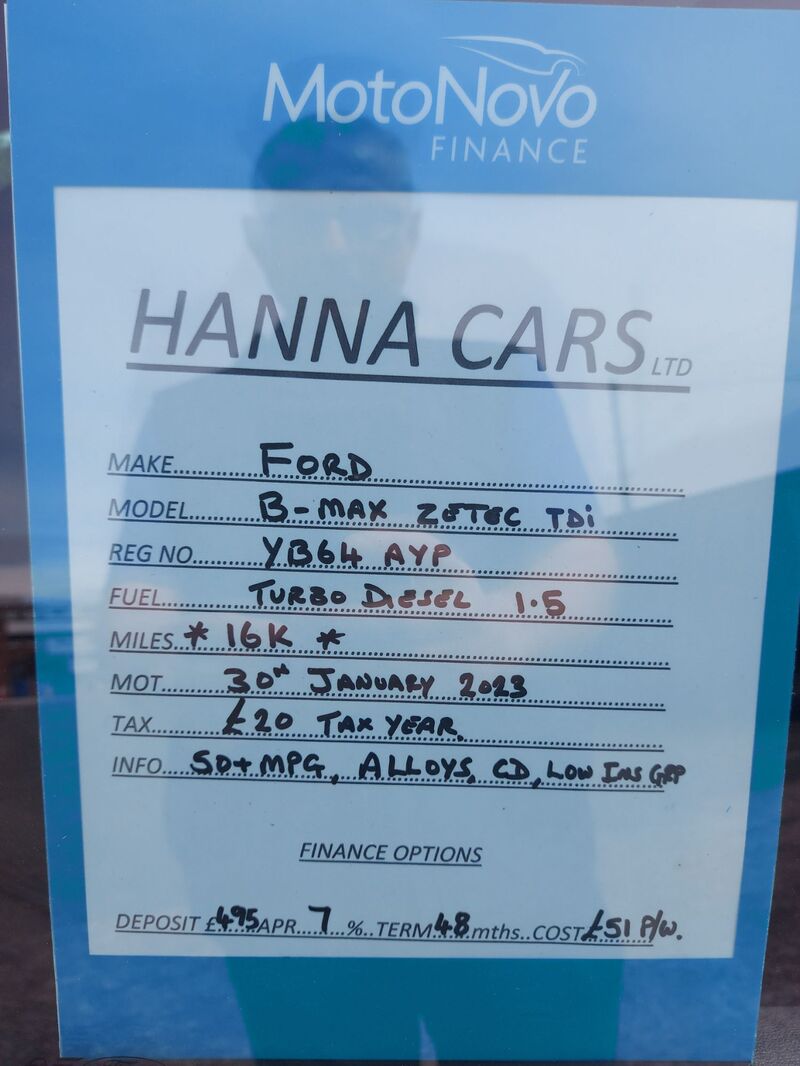 MotoNovo
FINANCE
HANNA CARS LTD
MAKE............FORD..................................................
MODEL..........B-MAX ZETEC TDi............
REG NO..........YB64 AYP..................................
FUEL..............TURBO DIESEL 1.5................
MILES * 16K *..................................................
MOT..........30TH JANUARY 2023....................
TAX...........£20 TAX YEAR...............................
INFO....50+MPG, ALLOYS, CD, LOW INS GRP
FINANCE OPTIONS
DEPOSIT £495 APR...7...%..TERM 48 mths..COST £51 P/W.